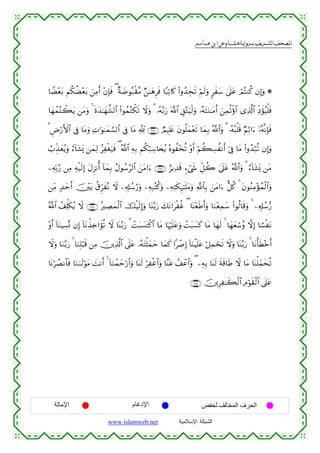 المصحف الشريف برواية هشام عن ابن عامر
۞ وَإِن كُنتُمْ عَلَىٰ سَفَرٍ وَلَمْ تَجِدُوا۟ كَاتِبًا فَرِهَٰنٌ مَّقْبُوضَةٌ ۖ فَإِنْ أَمِنَ بَعْضُكُم بَعْضًا
فَلْيُؤَدِّ ٱلَّذِى ٱؤْتُمِنَ أَمَٰنَتَهُۥ وَلْيَتَّقِ ٱللَّهَ رَبَّهُۥ ۗ وَلَا تَكْتُمُوا۟ ٱلشَّهَٰدَةَ ۚ وَمَن يَكْتُمْهَا
فَإِنَّهُۥٓ ءَاثِمٌ قَلْبُهُۥ ۗ وَٱللَّهُ بِمَا تَعْمَلُونَ عَلِيمٌ لِّلَّهِ مَا فِى ٱلسَّمَٰوَٰتِ وَمَا فِى ٱلْأَرْضِ ۗ
وَإِن تُبْدُوا۟ مَا فِىٓ أَنفُسِكُمْ أَوْ تُخْفُوهُ يُحَاسِبْكُم بِهِ ٱللَّهُ ۖ فَيَغْفِرُ لِمَن يَشَآءُ وَيُعَذِّبُ
مَن يَشَآءُ ۗ وَٱللَّهُ عَلَىٰ كُلِّ شَىْءٍ قَدِيرٌ ءَامَنَ ٱلرَّسُولُ بِمَآ أُنزِلَ إِلَيْهِ مِن رَّبِّهِۦ
وَٱلْمُؤْمِنُونَ ۚ كُلٌّ ءَامَنَ بِٱللَّهِ وَمَلَٰٓئِكَتِهِۦ وَكُتُبِهِۦ وَرُسُلِهِۦ لَا نُفَرِّقُ بَيْنَ أَحَدٍ مِّن
رُّسُلِهِۦ ۚ وَقَالُوا۟ سَمِعْنَا وَأَطَعْنَا ۖ غُفْرَانَكَ رَبَّنَا وَإِلَيْكَ ٱلْمَصِيرُ لَا يُكَلِّفُ ٱللَّهُ
نَفْسًا إِلَّا وُسْعَهَا ۚ لَهَا مَا كَسَبَتْ وَعَلَيْهَا مَا ٱكْتَسَبَتْ ۗ رَبَّنَا لَا تُؤَاخِذْنَآ إِن نَّسِينَآ أَوْ
أَخْطَأْنَا ۚ رَبَّنَا وَلَا تَحْمِلْ عَلَيْنَآ إِصْرًا كَمَا حَمَلْتَهُۥ عَلَى ٱلَّذِينَ مِن قَبْلِنَا ۚ رَبَّنَا وَلَا
تُحَمِّلْنَا مَا لَا طَاقَةَ لَنَا بِهِۦ ۖ وَٱعْفُ عَنَّا وَٱغْفِرْ لَنَا وَٱرْحَمْنَآ ۚ أَنتَ مَوْلَىٰنَا فَٱنصُرْنَا
عَلَى ٱلْقَوْمِ ٱلْكَٰفِرِينَ
الحرف المخالف لحفص الإدغام الإمالة
الشبكة الإسلامية www.islamweb.net